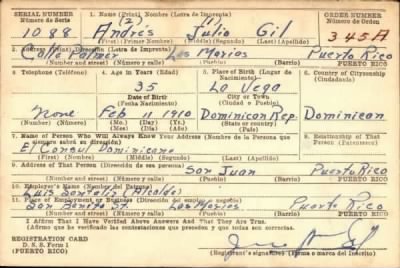 SERIAL NUMBER 1. Name (Print) Nombre (Letra de Imprenta) ORDER NUMBER
Número de Serie (2) Número de Orden
1088 Andrés Julio Gil 345A
(First) (Nombre) (Middle) (Segundo) (Last) (Apellido)
2. Address (Print) Dirección (Letra de Imprenta)
Calle Palmer Las Marías Puerto Rico
(Number and street) (Número y calle) (Barrio) PUERTO RICO
3. Telephone (Teléfono) 4. Age in Years (Edad) 5. Place of Birth (Lugar de Nacimiento) 6. Country of Citizenship (Ciudadanía)
35 La Vega
Date of Birth City or Town
(Fecha Nacimiento) (Ciudad o Pueblo)
None Feb 11 1910 Dominican Rep. Dominican
(Mo.) (Day) (Yr.) State or country)
(Mes) (Día) (Año) (Estado o país)
7. Name of Person Who Will Always Know Your Address (Nombre de la Persona que siempre sabrá su dirección) 8. Relationship of That Person
El Consul Dominicano
(First) (Nombre) (Middle) (Segundo) (Last) (Apellido) (Parentesco)
9. Address of That Person (Dirección de esa persona)
San Juan Puerto Rico
(Number and street) (Número y calle) (Barrio) PUERTO RICO
10. Employer's Name (Nombre del Patrono)
Luis (Alcalde)
11. Place of Employment or Business (Dirección del empleo o negocio)
San Benito St. Las Marías Puerto Rico
(Number and street) (Número y calle) (Barrio) PUERTO RICO
I Affirm That I Have Verified Above Answers And That They Are True.
(Afirmo que he verificado las contestaciones que preceden y que todas son correctas.
REGISTRATION CARD
D. S. S. Form 1
(PUERTO RICO) (Registrant's signature) (Firma o marca del inscrito)